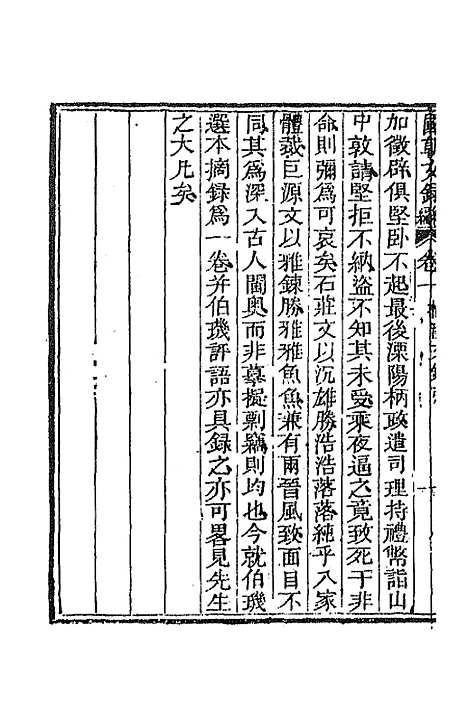 國朝文錄續編卷一
加徵辟俱堅卧不起最後溧陽柄政遣司理持禮幣詣山
中敦請堅拒不納盜不知其未受乘夜逼之竟致死于非
命則彌爲可哀矣石莊文以沉雄勝浩浩落落純乎八家
體裁巨源文以雅鍊勝雅雅魚魚兼有兩晉風致面目不
同其爲深入古人閫奧而非摹擬剽竊則均也今就伯璣
選本摘錄爲一卷并伯璣評語亦具錄之亦可畧見先生
之大凡矣